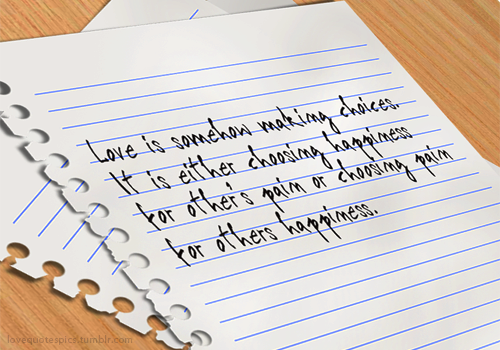 Love is somehow making choices.
It is either choosing happiness
for other's pain or choosing pain
for others happiness.
lovequotespics.tumblr.com